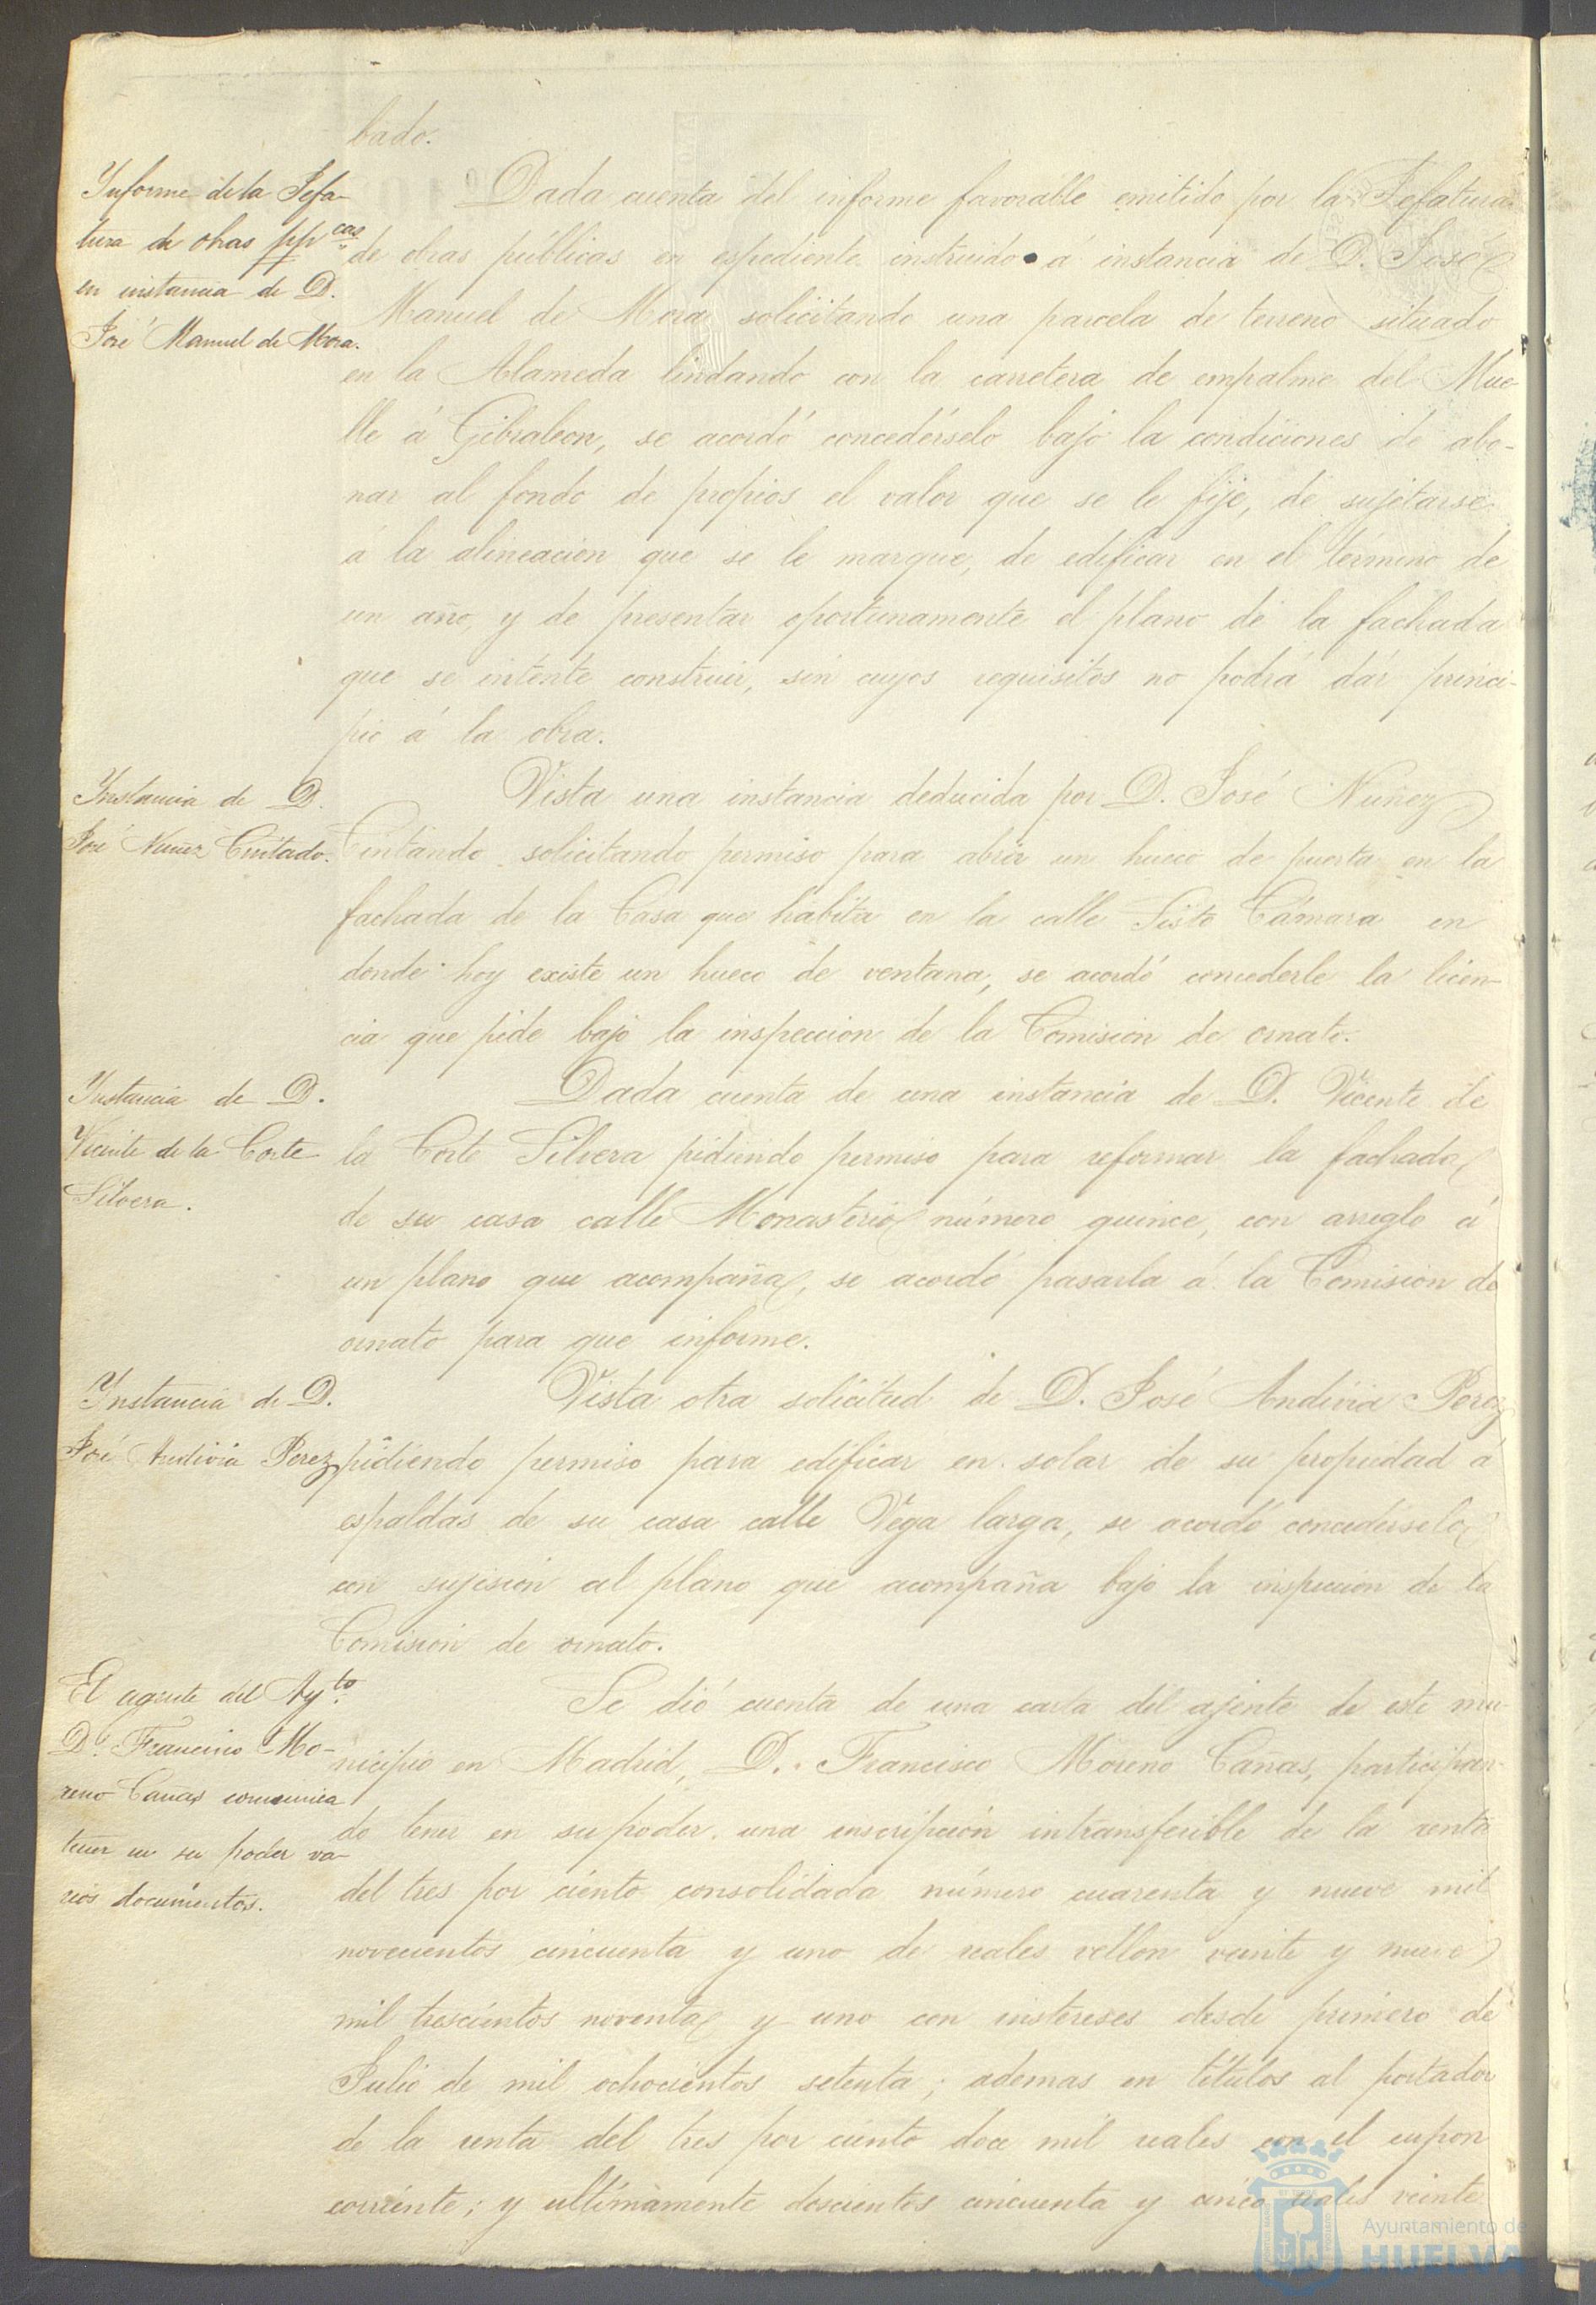 bado.
Informe de la Jefa-
tura de obras pp.cas
en instancia de D.
José Manuel de Mora.
Dada cuenta del informe favorable emitido por la Jefatura
de obras públicas en espediente instruido á instancia de D. José
Manuel de Mora solicitando una parcela de terreno situado
en la Alameda lindando con la carretera de empalme del Mue-
lle á Gibraleon, se acordó concedérselo bajo la condiciones de abo-
nar al fondo de propios el valor que se le fije, de sujetarse
á la alineacion que se le marque, de edificar en el término de
un año, y de presentar oportunamente el plano de la fachada
que se intente construir, sin cuyos requisitos no podrá dár princi-
pio á la obra.
Instancia de D.
José Nuñez Cintado.
Vista una instancia deducida por D. José Nuñez
Cintando solicitando permiso para abrir un hueco de puerta en la
fachada de la Casa que habita en la calle Sisto Cámara en
donde hoy existe un hueco de ventana, se acordó concederle la licen-
cia que pide bajo la inspeccion de la Comision de ornato.
Instancia de D.
Vicente de la Corte
Silvera.
Dada cuenta de una instancia de D. Vicente de
la Corte Silvera pidiendo permiso para reformar la fachada
de su casa calle Monasterio número quince, con arreglo á
un plano que acompaña, se acordó pasarla á la Comision de
ornato para que informe.
Instancia de D.
José Andivia Perez
Vista otra solicitud de D. José Andivia Perez
pidiendo permiso para edificar en solar de su propiedad á
espaldas de su casa calle Vega larga, se acordó concedérselo
con sujision al plano que acompaña bajo la inspeccion de la
Comision de ornato.
El agente del Ay.to
D. Francisco Mo-
reno Cañas comunica
tener en su poder va-
rios documentos.
Se dió cuenta de una carta del ajente de este mu-
nicipio en Madrid, D. Francisco Moreno Cañas, participan-
do tener en su poder una inscripcion intransferible de la renta
del tres por ciento consolidada número cuarenta y nueve mil
novecientos cincuenta y uno de reales vellon veinte y nueve
mil trescientos noventa y uno con instereses desde primero de
Julio de mil ochocientos setenta; ademas en títulos al portador
de la renta del tres por ciento doce mil reales con el cupon
corriente; y ultimamente doscientos cincuenta y cinco reales veinte
Ayuntamiento de
HUELVA